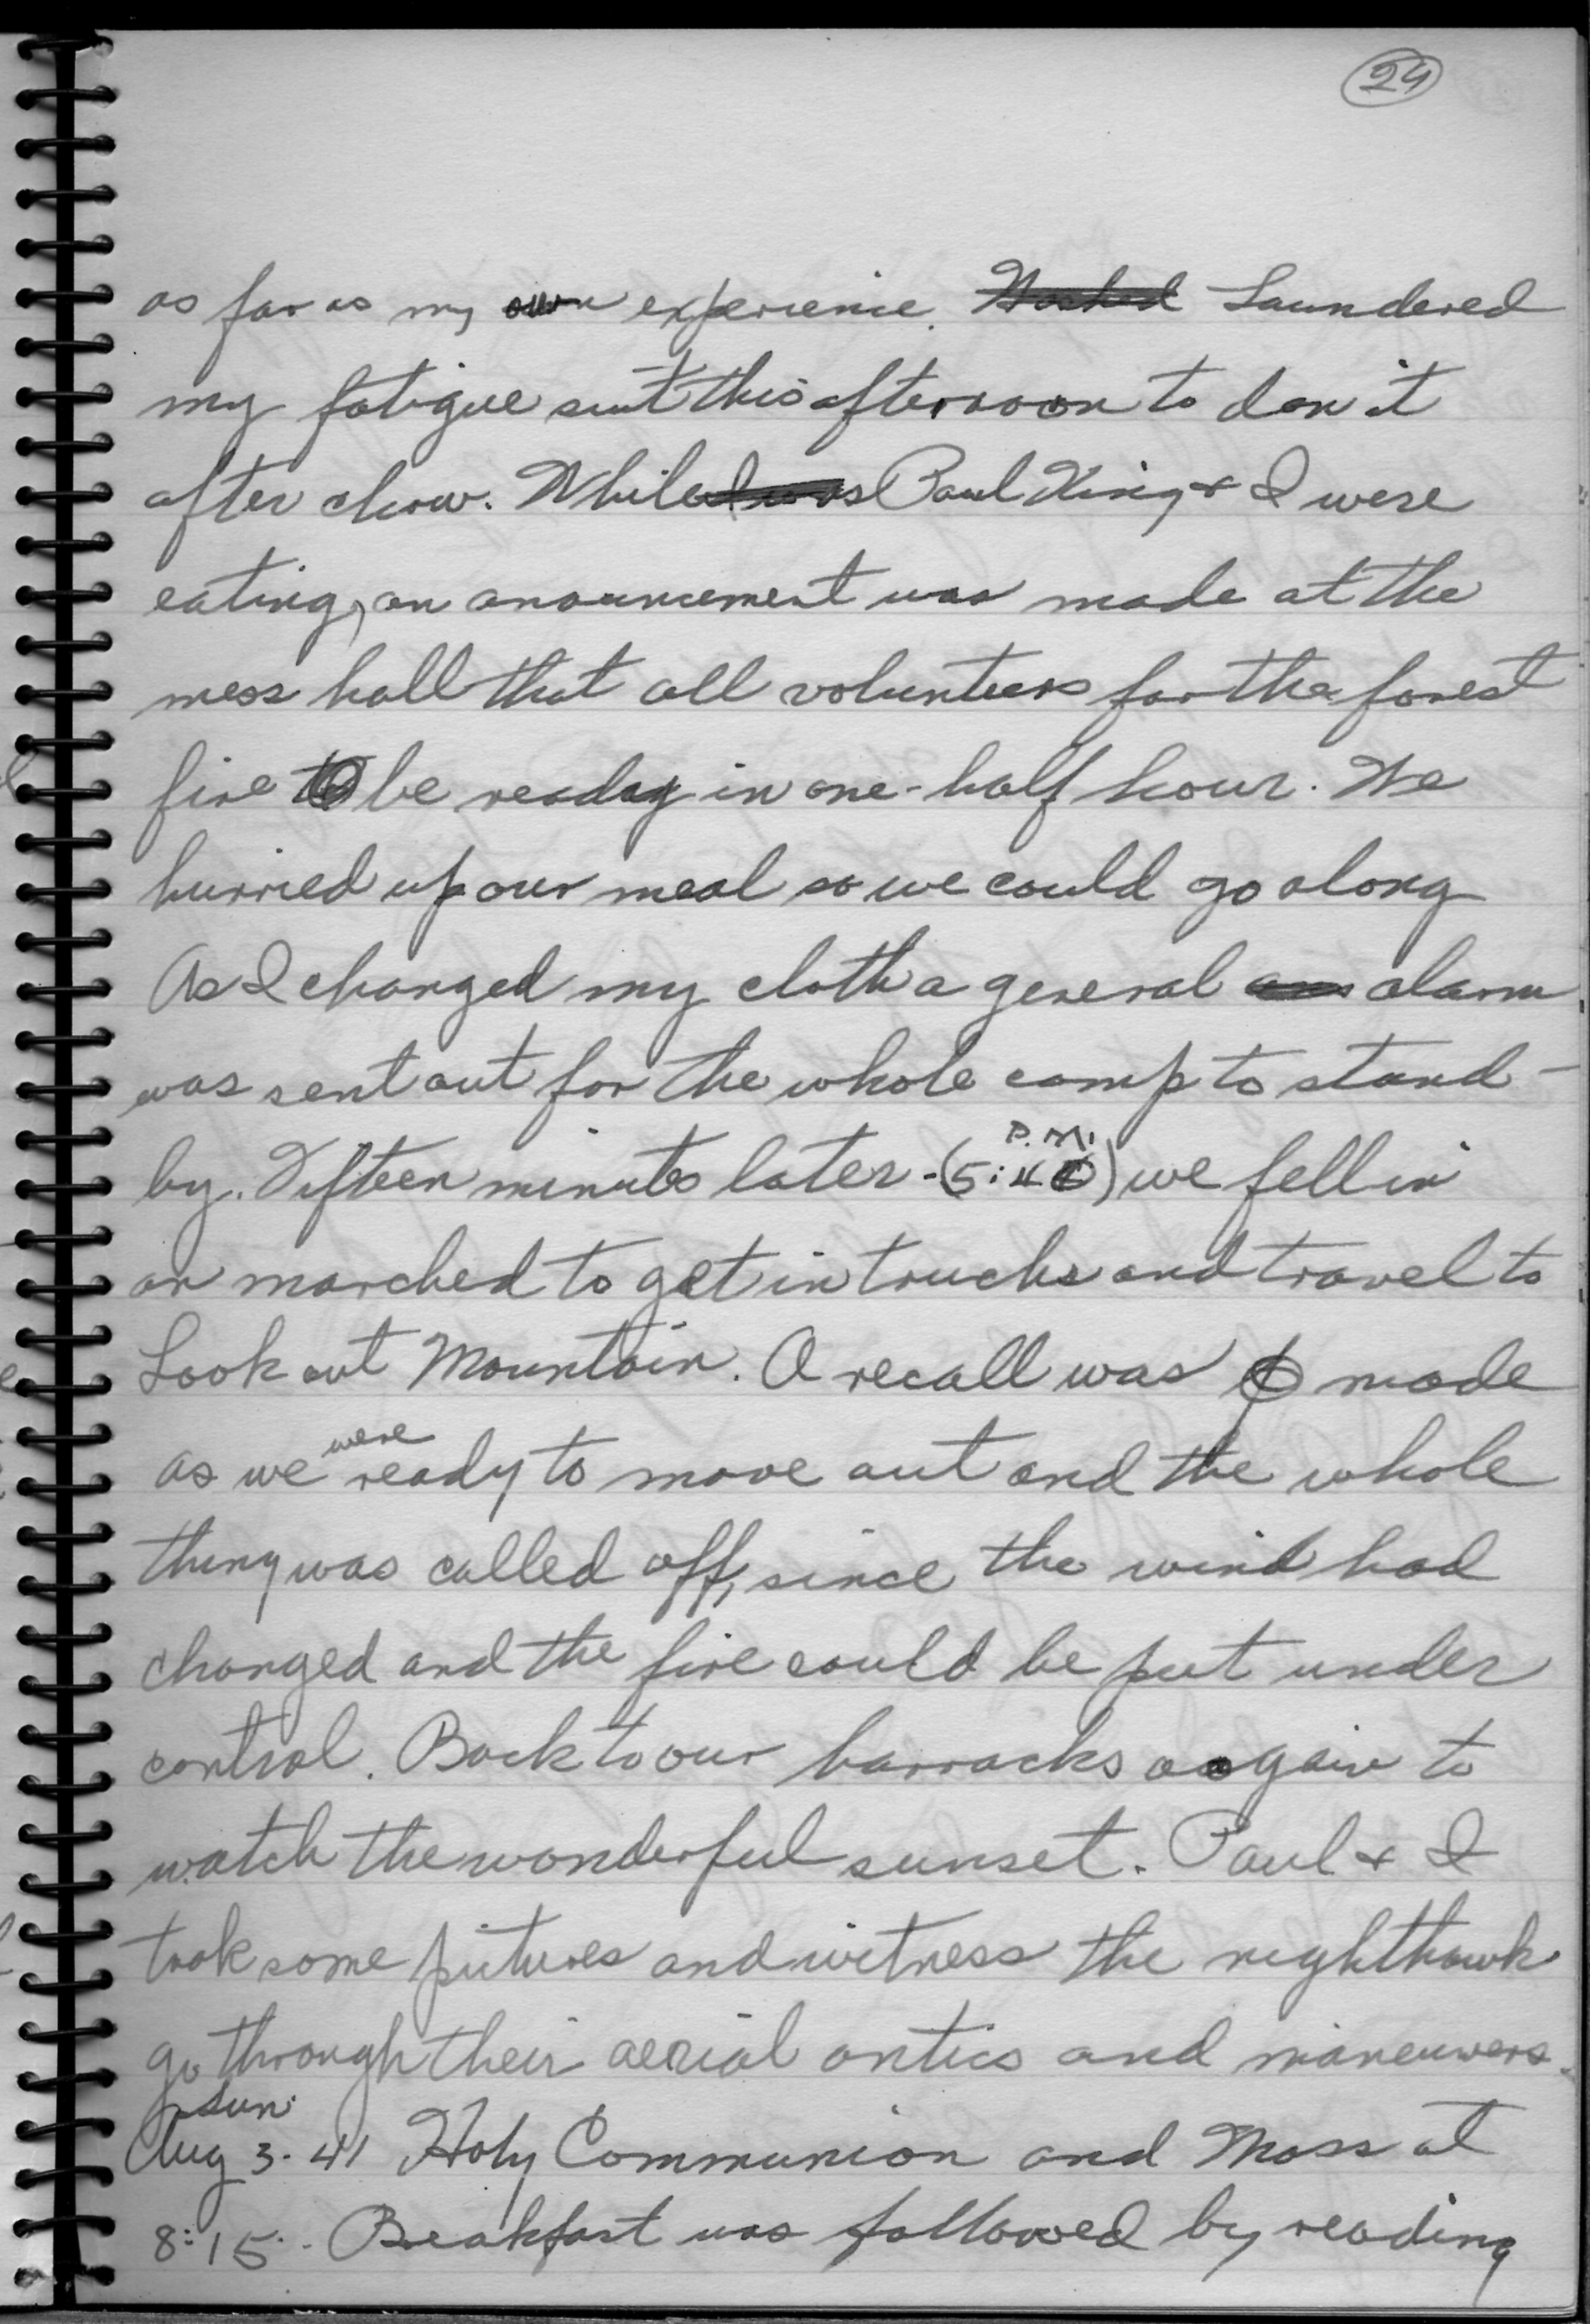 24
as far as my own experience. Washed Laundered
my fatigue suit this afternoon to don it
after chow. While I was Paul King & I were
eating, an anouncement was made at the
mess hall that all volunteers for the forest
fire to be ready in one-half hour. We
hurried up our meal so we could go along
As I changed my cloth a general alarm
was sent out for the whole camp to stand-
by. Fifteen minutes later - (5:40 P.M.) we fell in
an marched to get in trucks and travel to
Look out Mountain. A recall was made
as we were ready to move out and the whole
thing was called off, since the wind had
changed and the fire could be put under
control. Back to our barracks again to
watch the wonderful sunset. Paul & I
took some pitures and witness the nighthawk
go through their aerial antics and maneuvers.
Sun.
Aug 3-41 Holy Communion and Mass at
8:15. Breakfast was followed by reading